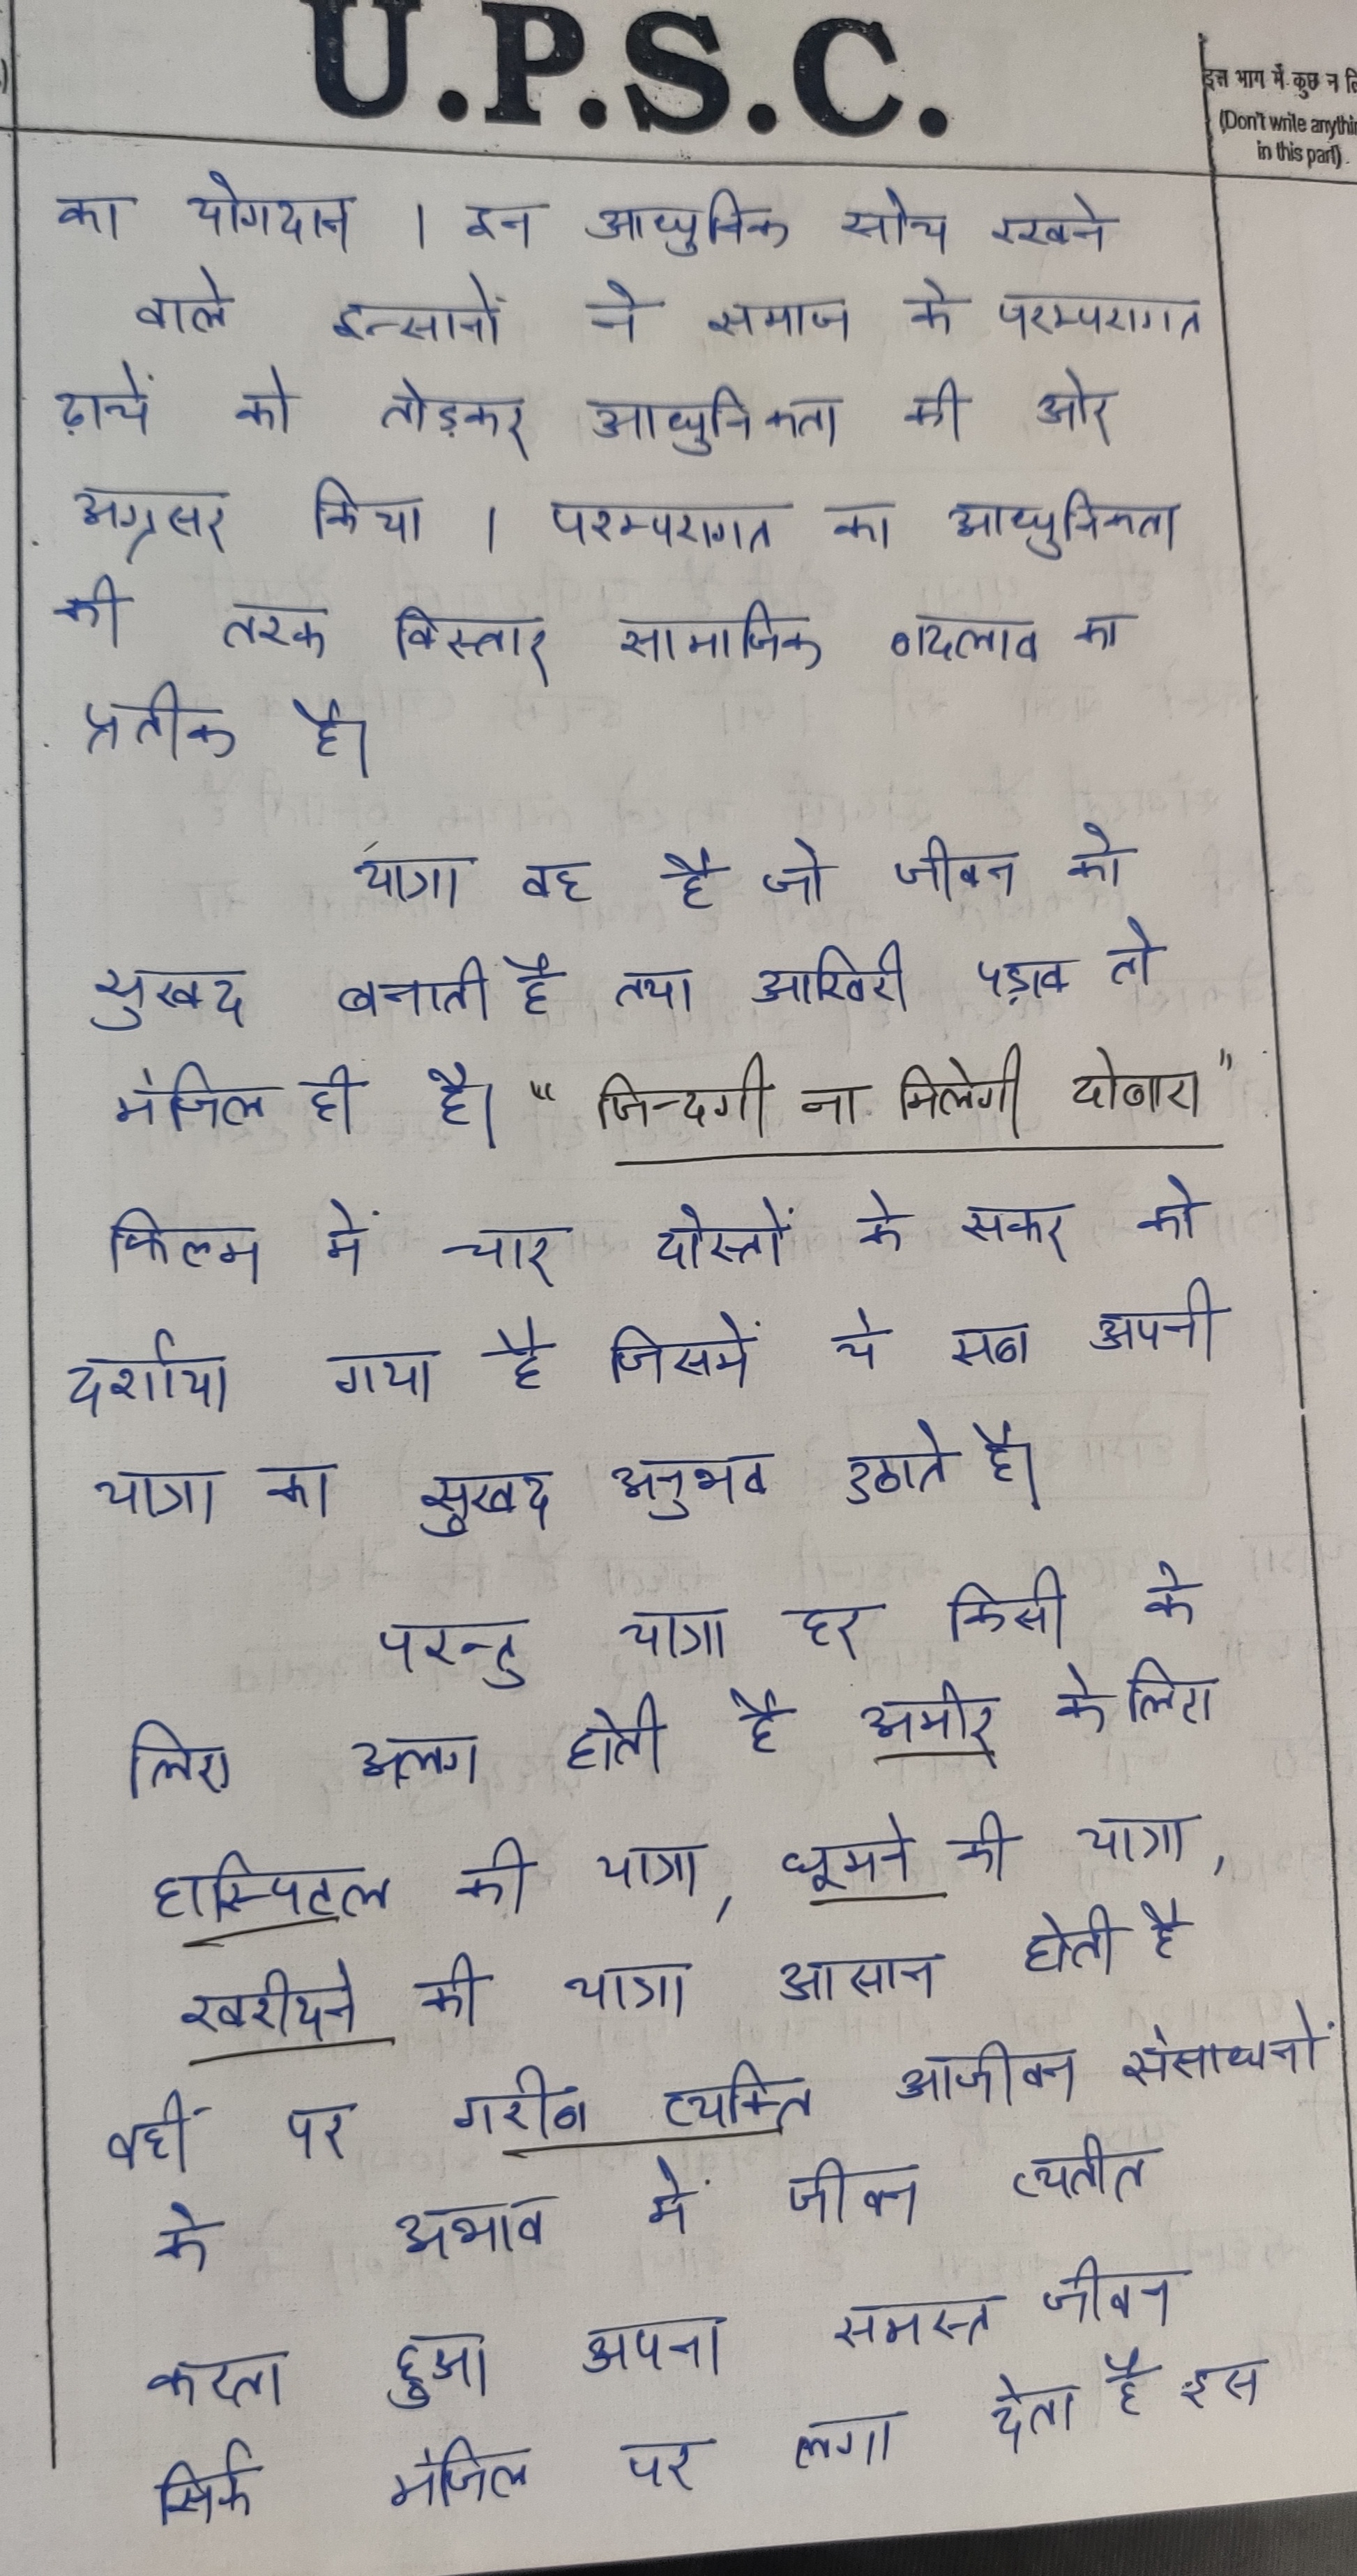 U.P.S.C.
इस भाग में कुछ न
(Don't write
in this part).
का योगदान । इन आधुनिक सोच रखने
वाले इन्सानों ने समाज के परम्परागत
ढ़ाचें को तोड़कर आधुनिकता की ओर
अग्रसर किया । परम्परागत का आधुनिकता
की तरफ विस्तार सामाजिक बदलाव का
प्रतीक है।
यात्रा वह है जो जीवन को
सुखद बनाती है तथा आखिरी पड़ाव तो
मंजिल ही है। "जिन्दगी ना मिलेगी दोबारा"
फिल्म में चार दोस्तों के सफर को
दर्शाया गया है जिसमें ये सब अपनी
यात्रा का सुखद अनुभव उठाते है।
परन्तु यात्रा हर किसी के
लिए अलग होती है अमीर के लिए
हास्पिटल की यात्रा, घूमने की यात्रा,
खरीदने की यात्रा आसान होती है
वहीं पर गरीब व्यक्ति आजीवन संसाधनों
के अभाव में जीवन व्यतीत
करता हुआ अपना समस्त जीवन
सिर्फ मंजिल पर लगा देता है इस